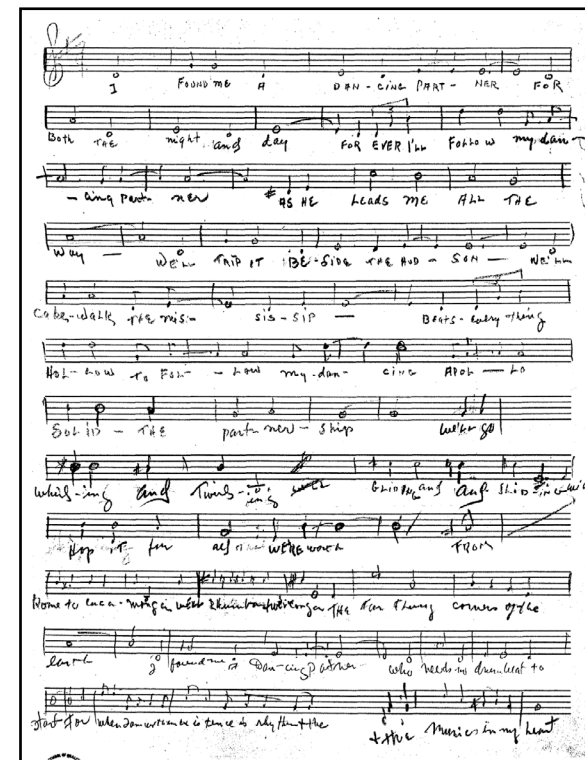 I FOUND ME A DAN - CING PART - NER FOR
Both THE night and day FOR EVER I'LL FOLLOW my dan -
- cing part ner AS HE LEADS ME ALL THE
Way — WE'LL TRIP IT BE - SIDE THE HUD - SON — WE'LL
Cake-walk THE MIS - SIS - SIP — BEATS - every thing
HOL - LOW TO FOL - LOW my - dan - CING APOL - LO
SOLID - THE part ner - Ship we're go
whirl - ing and Twirl - ing GLIDING and and SLID - ING
Hop it for all WE'RE worth FROM
Rome to THE Far flung corners of the
earth I found me a Dan - cing Partner who needs no drum beat to
start for when is tence is rhythm + the
+ the Music's in my heart